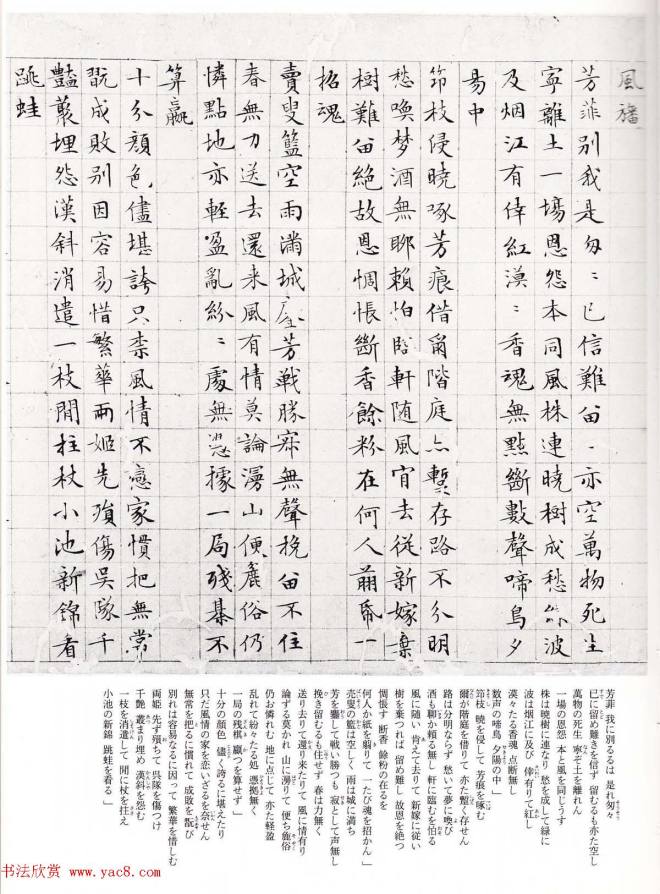 風旛
芳菲別我是匆〻已信難留〻亦空萬物死生
寧離土一場恩怨本同風株連曉樹成愁綠波
及烟江有倖紅漠〻香魂無點斷數聲啼鳥夕
昜中
笻枝侵曉啄芳痕借爾階庭亦蹔存路不分明
愁喚梦酒無聊賴怕臨軒随風肯去從新嫁棄
樹難留絶故恩惆悵斷香餘粉在何人剪帋一
招魂
賣叟籃空雨滿城鏖芳戦勝寂無聲挽留不住
春無力送去還来風有情莫論漫山便麁俗仍
憐點地亦輕盈亂紛〻處無憑據一局殘棊不
算贏
十分顔色儘堪誇只柰風情不戀家慣把無常
翫成敗別因容易惜繁華兩姬先殞傷吳隊千
豔叢埋怨漢斜消遣一枝閒拄杖小池新錦看
跳蛙
芳菲 我に別るるは 是れ匆々
已に留め難きを信ず 留むるも亦た空し
萬物の死生 寧ぞ土を離れん
一場の恩怨 本と風を同じうす
株は曉樹に連なり 愁を成して緑に
波は烟江に及び 倖有りて紅し
漠々たる香魂 点断無し
数声の啼鳥 夕陽の中」
笻枝 曉を侵して 芳痕を啄む
爾が階庭を借りて 亦た蹔く存せん
路は分明ならず 愁いて夢に喚び
酒も聊か頼る無し 軒に臨むを怕る
風に随い 肯えて去りて 新嫁に従い
樹を棄つれば 留め難し 故恩を絶つ
惆悵す 断香 餘粉の在るを
何人か紙を剪りて 一たび魂を招かん」
売叟の籃は空しく 雨は城に満ち
芳を鏖して戦い勝つも 寂として声無し
挽き留むるも住せず 春は力無く
送り去りて還り来たりて 風に情有り
論ずる莫かれ 山に漫りて 便ち麁俗
仍お憐れむ 地に点じて 亦た軽盈
乱れて紛々たる処 憑拠無く
一局の残棋 贏つを算せず」
十分の顔色 儘く誇るに堪えたり
只だ風情の家を恋いざるを奈せん
無常を把るに慣れて 成敗を翫び
別れは容易なるに因って 繁華を惜しむ
両姫 先ず殞ちて 呉隊を傷つけ
千艶 叢まり埋め 漢斜を怨む
一枝を消遣して 閒に杖を拄え
小池の新錦 跳蛙を看る」
书法欣赏 www.yac8.com